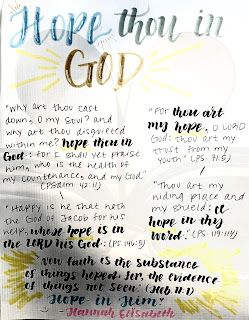 Hope thou in
GOD
"Why art thou cast
down, O my soul? and
why art thou disquieted
within me? hope thou in
God: for I shall yet praise
him, who is the health of
my countenance, and my God."
(Psalm 42:11)
"For thou art
my hope, O LORD
God: thou art my
trust from my
youth." (Ps. 71:5)
"Happy is he that hath
the God of Jacob for his
help, whose hope is in
the LORD his God:" (Ps. 146:5)
"Thou art my
hiding place and
my shield: I
hope in thy
word." (Ps. 119:114)
"Now faith is the substance
of things hoped for, the evidence
of things not seen." (Heb. 11:1)
Hope in Him!
-Hannah Elisabeth